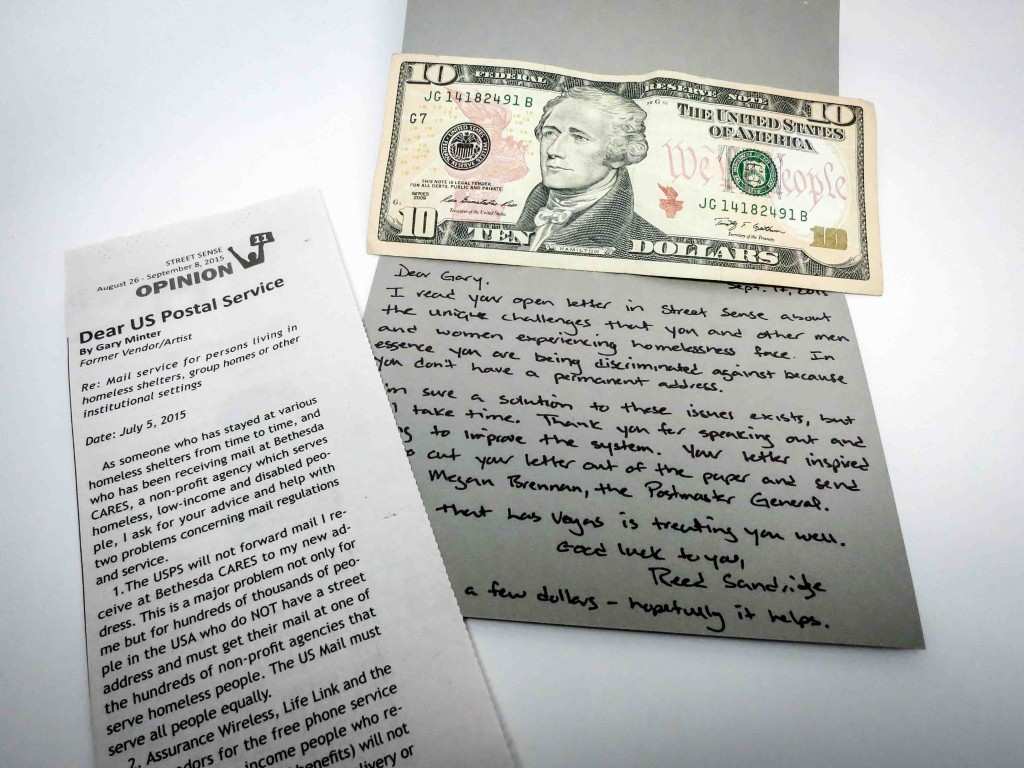 11
STREET SENSE
August 26 - September 8, 2015
OPINION
Dear US Postal Service
By Gary Minter
Former Vendor/Artist
Re: Mail service for persons living in
homeless shelters, group homes or other
institutional settings
Date: July 5, 2015
As someone who has stayed at various
homeless shelters from time to time, and
who has been receiving mail at Bethesda
CARES, a non-profit agency which serves
homeless, low-income and disabled peo-
ple, I ask for your advice and help with
two problems concerning mail regulations
and service.
1.The USPS will not forward mail I re-
ceive at Bethesda CARES to my new ad-
dress. This is a major problem not only for
me but for hundreds of thousands of peo-
ple in the USA who do NOT have a street
address and must get their mail at one of
the hundreds of non-profit agencies that
serve homeless people. The US Mail must
serve all people equally.
2. Assurance Wireless, Life Link and the
dors for the free phone service
income people who re-
benefits) will not
livery or
10
FEDERAL RESERVE NOTE
10
JG 14182491 B
G7
THE UNITED STATES
OF AMERICA
We the People
THIS NOTE IS LEGAL TENDER
FOR ALL DEBTS, PUBLIC AND PRIVATE
SERIES
2009
Treasurer of the United States
JG 14182491 B
Secretary of the Treasury
10
TEN
HAMILTON
DOLLARS
10
Sept. 17, 2015
Dear Gary,
I read your open letter in Street Sense about
the unique challenges that you and other men
and women experiencing homelessness face. In
essence you are being discriminated against because
you don't have a permanent address.
I'm sure a solution to these issues exists, but
take time. Thank you for speaking out and
to improve the system. Your letter inspired
cut your letter out of the paper and send
Megan Brennan, the Postmaster General.
that Las Vegas is treating you well.
Good luck to you,
Reed Sandridge
a few dollars - hopefully it helps.